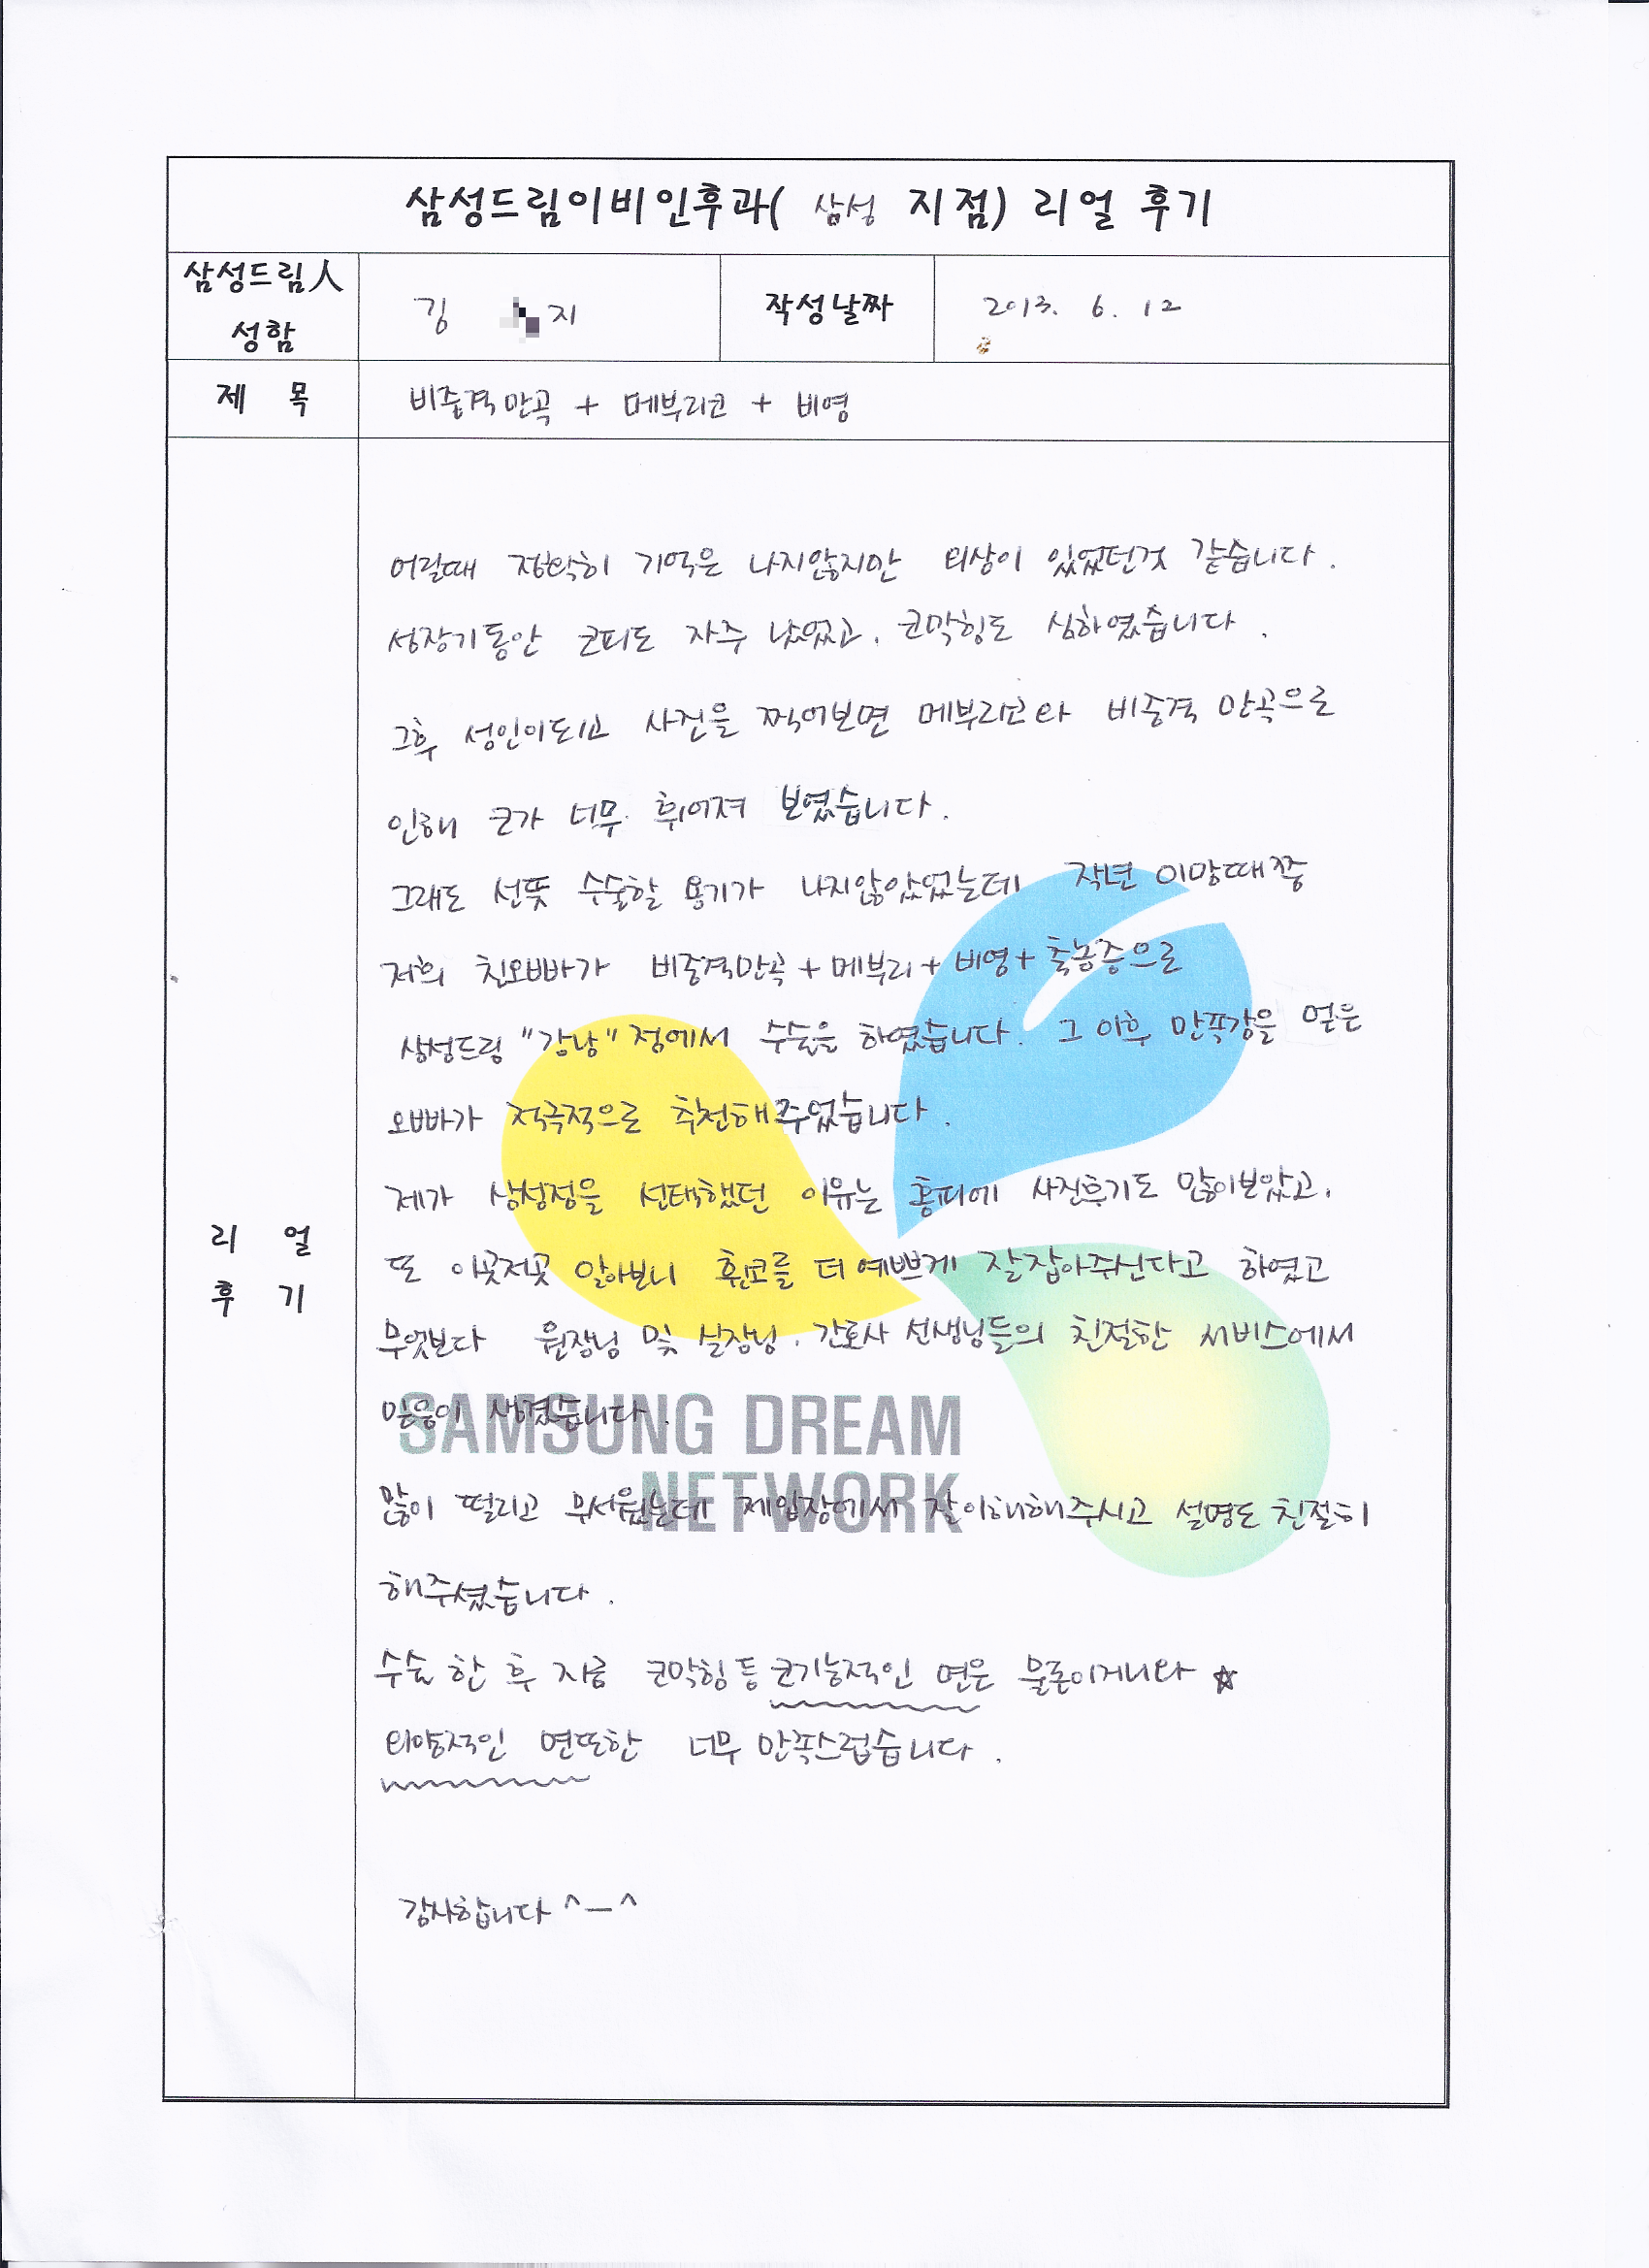 삼성드림이비인후과( 삼성 지점) 리얼 후기
삼성드림人 성함
김 지
작성날짜
2013. 6. 12
제 목
비중격만곡 + 메부리코 + 비영
리 얼 후 기
어릴때 정확히 기억은 나지않지만 외상이 있었던것 같습니다.
성장기동안 코피도 자주 났었고, 코막힘도 심하였습니다.
그후 성인이되고 사진을 찍어보면 메부리코와 비중격 만곡으로
인해 코가 너무 휘어져 보였습니다.
그래도 선뜻 수술할 용기가 나지않았었는데 작년 이맘때쯤
저희 친오빠가 비중격만곡+메부리+비영+축농증으로
삼성드림 "강남"점에서 수술을 하였습니다. 그 이후 만족감을 얻은
오빠가 적극적으로 추천해주었습니다.
제가 삼성점을 선택했던 이유는 홈피에 사진후기도 많이보았고,
또 이곳저곳 알아보니 휜코를 더 예쁘게 잘잡아주신다고 하였고
무엇보다 원장님 및 실장님, 간호사 선생님들의 친절한 서비스에서
믿음이 생겼습니다.
SAMSUNG DREAM
NETWORK
많이 떨리고 무서웠는데 제입장에서 잘이해해주시고 설명도 친절히
해주셨습니다.
수술 한 후 지금 코막힘등 코기능적인 면은 물론이거니와 ☆
외양적인 면또한 너무 만족스럽습니다.
감사합니다 ^ㅡ^